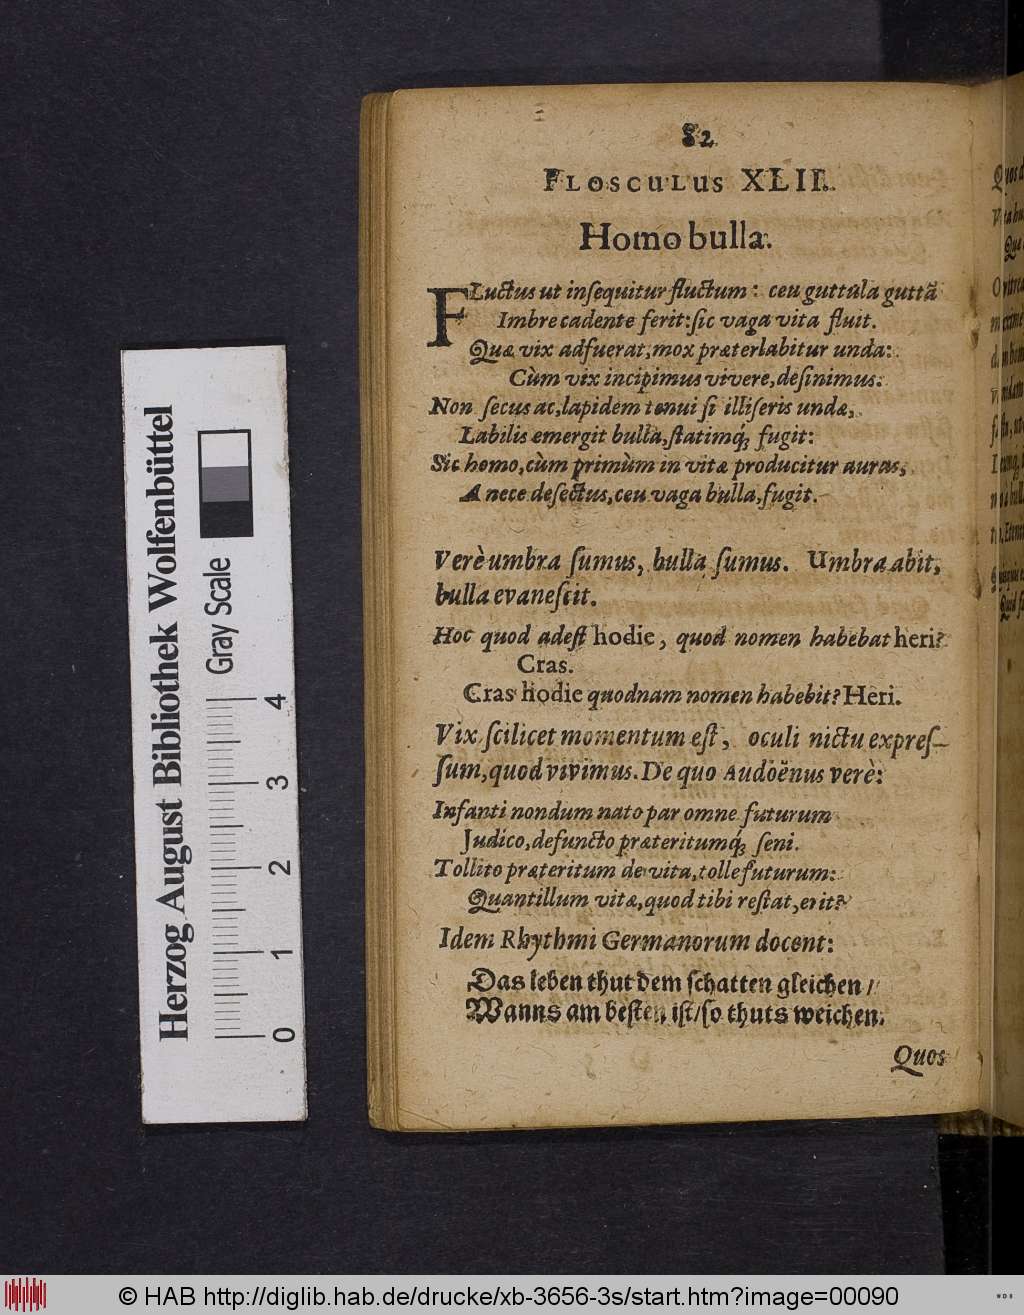 82
FLOSCULUS XLII.
Homo bulla.
FLuctus ut inſequitur fluctum: ceu guttula guttã
Imbre cadente ferit: ſic vaga vita fluit.
Quæ vix adfuerat, mox præterlabitur unda:
Cùm vix incipimus vivere, deſinimus.
Non ſecus ac, lapidem tenui ſi illiſeris undæ,
Labilis emergit bulla, ſtatimq́; fugit:
Sic homo, cùm primùm in vitæ producitur auras,
A nece deſectus, ceu vaga bulla, fugit.
Verè umbra ſumus, bulla ſumus. Umbra abit,
bulla evaneſcit.
Hoc quod adeſt hodie, quod nomen habebat heri?
Cras.
Cras hodie quodnam nomen habebit? Heri.
Vix ſcilicet momentum eſt, oculi nictu expreſ-
ſum, quod vivimus. De quo Audoënus verè:
Infanti nondum nato par omne futurum
Judico, defuncto præteritumq́; ſeni.
Tollito præteritum de vita, tolle futurum:
Quantillum vitæ, quod tibi reſtat, erit?
Idem Rhythmi Germanorum docent:
Das leben thut dem ſchatten gleichen /
Wanns am beſten iſt/ ſo thuts weichen.
Quos
Herzog August Bibliothek Wolfenbüttel
Gray Scale
0 1 2 3 4
© HAB http://diglib.hab.de/drucke/xb-3656-3s/start.htm?image=00090